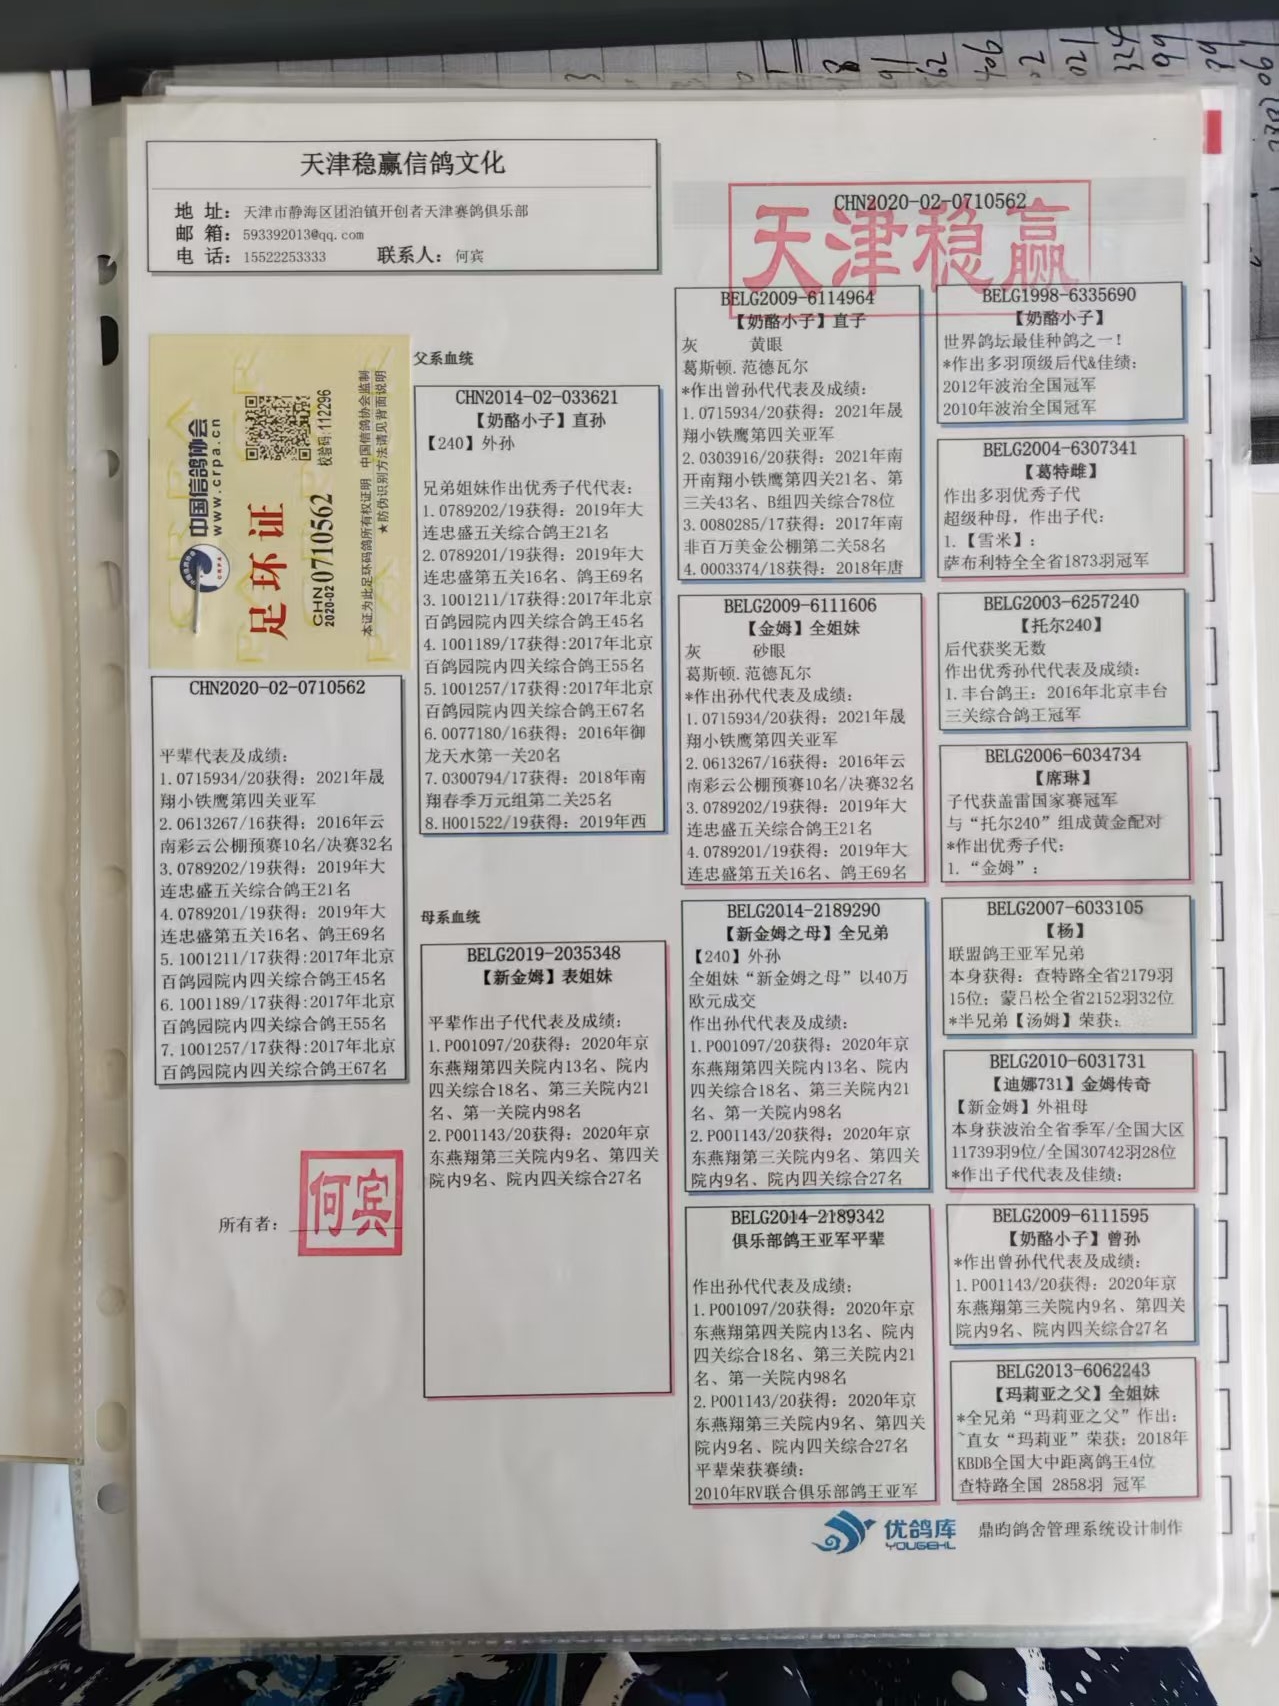 天津稳赢信鸽文化
地 址：天津市静海区团泊镇开创者天津赛鸽俱乐部
邮 箱：593392013@qq.com
电 话：15522253333 联系人：何宾
CHN2020-02-0710562
天津稳赢
中国信鸽协会
www.crpa.cn
CRPA
校验码:112296
足环证
CHN 2020-02 0710562
本证为此足环码鸽所有权证明 中国信鸽协会监制
★防伪识别方法请见背面说明
CHN2020-02-0710562
平辈代表及成绩：
1.0715934/20获得：2021年晟
翔小铁鹰第四关亚军
2.0613267/16获得：2016年云
南彩云公棚预赛10名/决赛32名
3.0789202/19获得：2019年大
连忠盛五关综合鸽王21名
4.0789201/19获得：2019年大
连忠盛第五关16名、鸽王69名
5.1001211/17获得:2017年北京
百鸽园院内四关综合鸽王45名
6.1001189/17获得:2017年北京
百鸽园院内四关综合鸽王55名
7.1001257/17获得:2017年北京
百鸽园院内四关综合鸽王67名
所有者：
何宾
父系血统
CHN2014-02-033621
【奶酪小子】直孙
【240】外孙
兄弟姐妹作出优秀子代代表：
1.0789202/19获得：2019年大
连忠盛五关综合鸽王21名
2.0789201/19获得：2019年大
连忠盛第五关16名、鸽王69名
3.1001211/17获得:2017年北京
百鸽园院内四关综合鸽王45名
4.1001189/17获得:2017年北京
百鸽园院内四关综合鸽王55名
5.1001257/17获得:2017年北京
百鸽园院内四关综合鸽王67名
6.0077180/16获得：2016年御
龙天水第一关20名
7.0300794/17获得：2018年南
翔春季万元组第二关25名
8.H001522/19获得：2019年西
母系血统
BELG2019-2035348
【新金姆】表姐妹
平辈作出子代代表及成绩：
1.P001097/20获得：2020年京
东燕翔第四关院内13名、院内
四关综合18名、第三关院内21
名、第一关院内98名
2.P001143/20获得：2020年京
东燕翔第三关院内9名、第四关
院内9名、院内四关综合27名
BELG2009-6114964
【奶酪小子】直子
灰 黄眼
葛斯顿.范德瓦尔
*作出曾孙代代表及成绩：
1.0715934/20获得：2021年晟
翔小铁鹰第四关亚军
2.0303916/20获得：2021年南
开南翔小铁鹰第四关21名、第
三关43名、B组四关综合78位
3.0080285/17获得：2017年南
非百万美金公棚第二关58名
4.0003374/18获得：2018年唐
BELG2009-6111606
【金姆】全姐妹
灰 砂眼
葛斯顿.范德瓦尔
*作出孙代代表及成绩：
1.0715934/20获得：2021年晟
翔小铁鹰第四关亚军
2.0613267/16获得：2016年云
南彩云公棚预赛10名/决赛32名
3.0789202/19获得：2019年大
连忠盛五关综合鸽王21名
4.0789201/19获得：2019年大
连忠盛第五关16名、鸽王69名
BELG2014-2189290
【新金姆之母】全兄弟
【240】外孙
全姐妹“新金姆之母”以40万
欧元成交
作出孙代代表及成绩：
1.P001097/20获得：2020年京
东燕翔第四关院内13名、院内
四关综合18名、第三关院内21
名、第一关院内98名
2.P001143/20获得：2020年京
东燕翔第三关院内9名、第四关
院内9名、院内四关综合27名
BELG2014-2189342
俱乐部鸽王亚军平辈
作出孙代代表及成绩：
1.P001097/20获得：2020年京
东燕翔第四关院内13名、院内
四关综合18名、第三关院内21
名、第一关院内98名
2.P001143/20获得：2020年京
东燕翔第三关院内9名、第四关
院内9名、院内四关综合27名
平辈荣获赛绩：
2010年RV联合俱乐部鸽王亚军
BELG1998-6335690
【奶酪小子】
世界鸽坛最佳种鸽之一！
*作出多羽顶级后代&佳绩：
2012年波治全国冠军
2010年波治全国冠军
BELG2004-6307341
【葛特雌】
作出多羽优秀子代
超级种母，作出子代：
1.【雪米】：
萨布利特全全省1873羽冠军
BELG2003-6257240
【托尔240】
后代获奖无数
作出优秀孙代代表及成绩：
1.丰台鸽王：2016年北京丰台
三关综合鸽王冠军
BELG2006-6034734
【席琳】
子代获盖雷国家赛冠军
与“托尔240”组成黄金配对
*作出优秀子代：
1.“金姆”：
BELG2007-6033105
【杨】
联盟鸽王亚军兄弟
本身获得：查特路全省2179羽
15位；蒙吕松全省2152羽32位
*半兄弟【汤姆】荣获：
BELG2010-6031731
【迪娜731】金姆传奇
【新金姆】外祖母
本身获波治全省季军/全国大区
11739羽9位/全国30742羽28位
*作出子代代表及佳绩：
BELG2009-6111595
【奶酪小子】曾孙
*作出曾孙代代表及成绩：
1.P001143/20获得：2020年京
东燕翔第三关院内9名、第四关
院内9名、院内四关综合27名
BELG2013-6062243
【玛莉亚之父】全姐妹
*全兄弟“玛莉亚之父”作出：
~直女“玛莉亚”荣获：2018年
KBDB全国大中距离鸽王4位
查特路全国 2858羽 冠军
优鸽库
YOUGEKU
鼎昀鸽舍管理系统设计制作